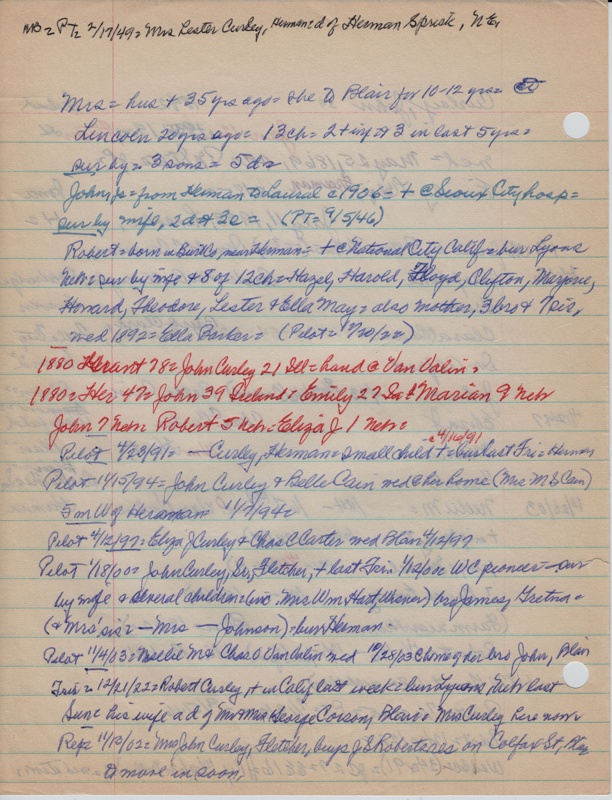 NB = PT = 2/17/49 = Mrs Lester Curley, Herman = d of Herman Spriek, NE,
Mrs = hus + 35 yrs ago = she to Blair for 10-12 yrs =
Lincoln 20 yrs ago = 13 ch = 2 + inf & 3 in last 5 yrs =
sur by = 3 sons = 5 d =
John, Jr = from Herman to Laurel c 1906 = + @ Sioux City hosp =
sur by wife, 2 d & 2 c = (PT = 9/5/46)
Robert = born in Burt Co near Herman = + @ National City Calif = bur Lyons
Neb = sur by wife & 8 of 12 ch = Hazel, Harold, Floyd, Clifton, Marjorie,
Howard, Theodore, Lester & Ella May = also mother, 3 bro & 7 sis,
wed 1892 = Ella Parker = (Pilot = /20/22)
1880 Herant 78 = John Curley 21 Ill = hand @ Van Valin =
1880 = Her 47 = John 39 Ireland = Emily 27 Marian 9 Nebr
John 7 Nebr Robert 5 Nebr = Eliza J 1 Nebr =
c 4/16/91
Pilot 4/23/91 = — Curley, Herman = small child + = bur last Fri = Herman
Pilot 11/15/94 = John Curley & Belle Cain wed @ her home (Mrs M E Cain)
5 m W of Herman 11/7/94 =
Pilot 4/12/97 = Eliza J Curley & Chas C Carter wed Blair 4/12/97
Pilot 1/18/00 = John Curley, Sr, Fletcher, + last Fri = 1/12/00 WC pioneer — sur
by wife & several children = (inc. Mrs Wm Hart, Wisner) bro James, Gretna =
(& Mrs' sis = — Mrs — Johnson) = bur Herman =
Pilot 11/4/03 = Nellie M & Chas O Van Valin wed 10/28/03 @ home of her bro John, Blair
Trib = 12/21/22 = Robert Curley, + in Calif last week = bur Lyons Neb last
Sun = his wife a d of Mr & Mrs George Corson, Blair = Mrs Curley here now =
Rep = 11/13/02 = Mrs John Curley, Fletcher, buys J S Roberts res on Colfax St,
to move in soon,